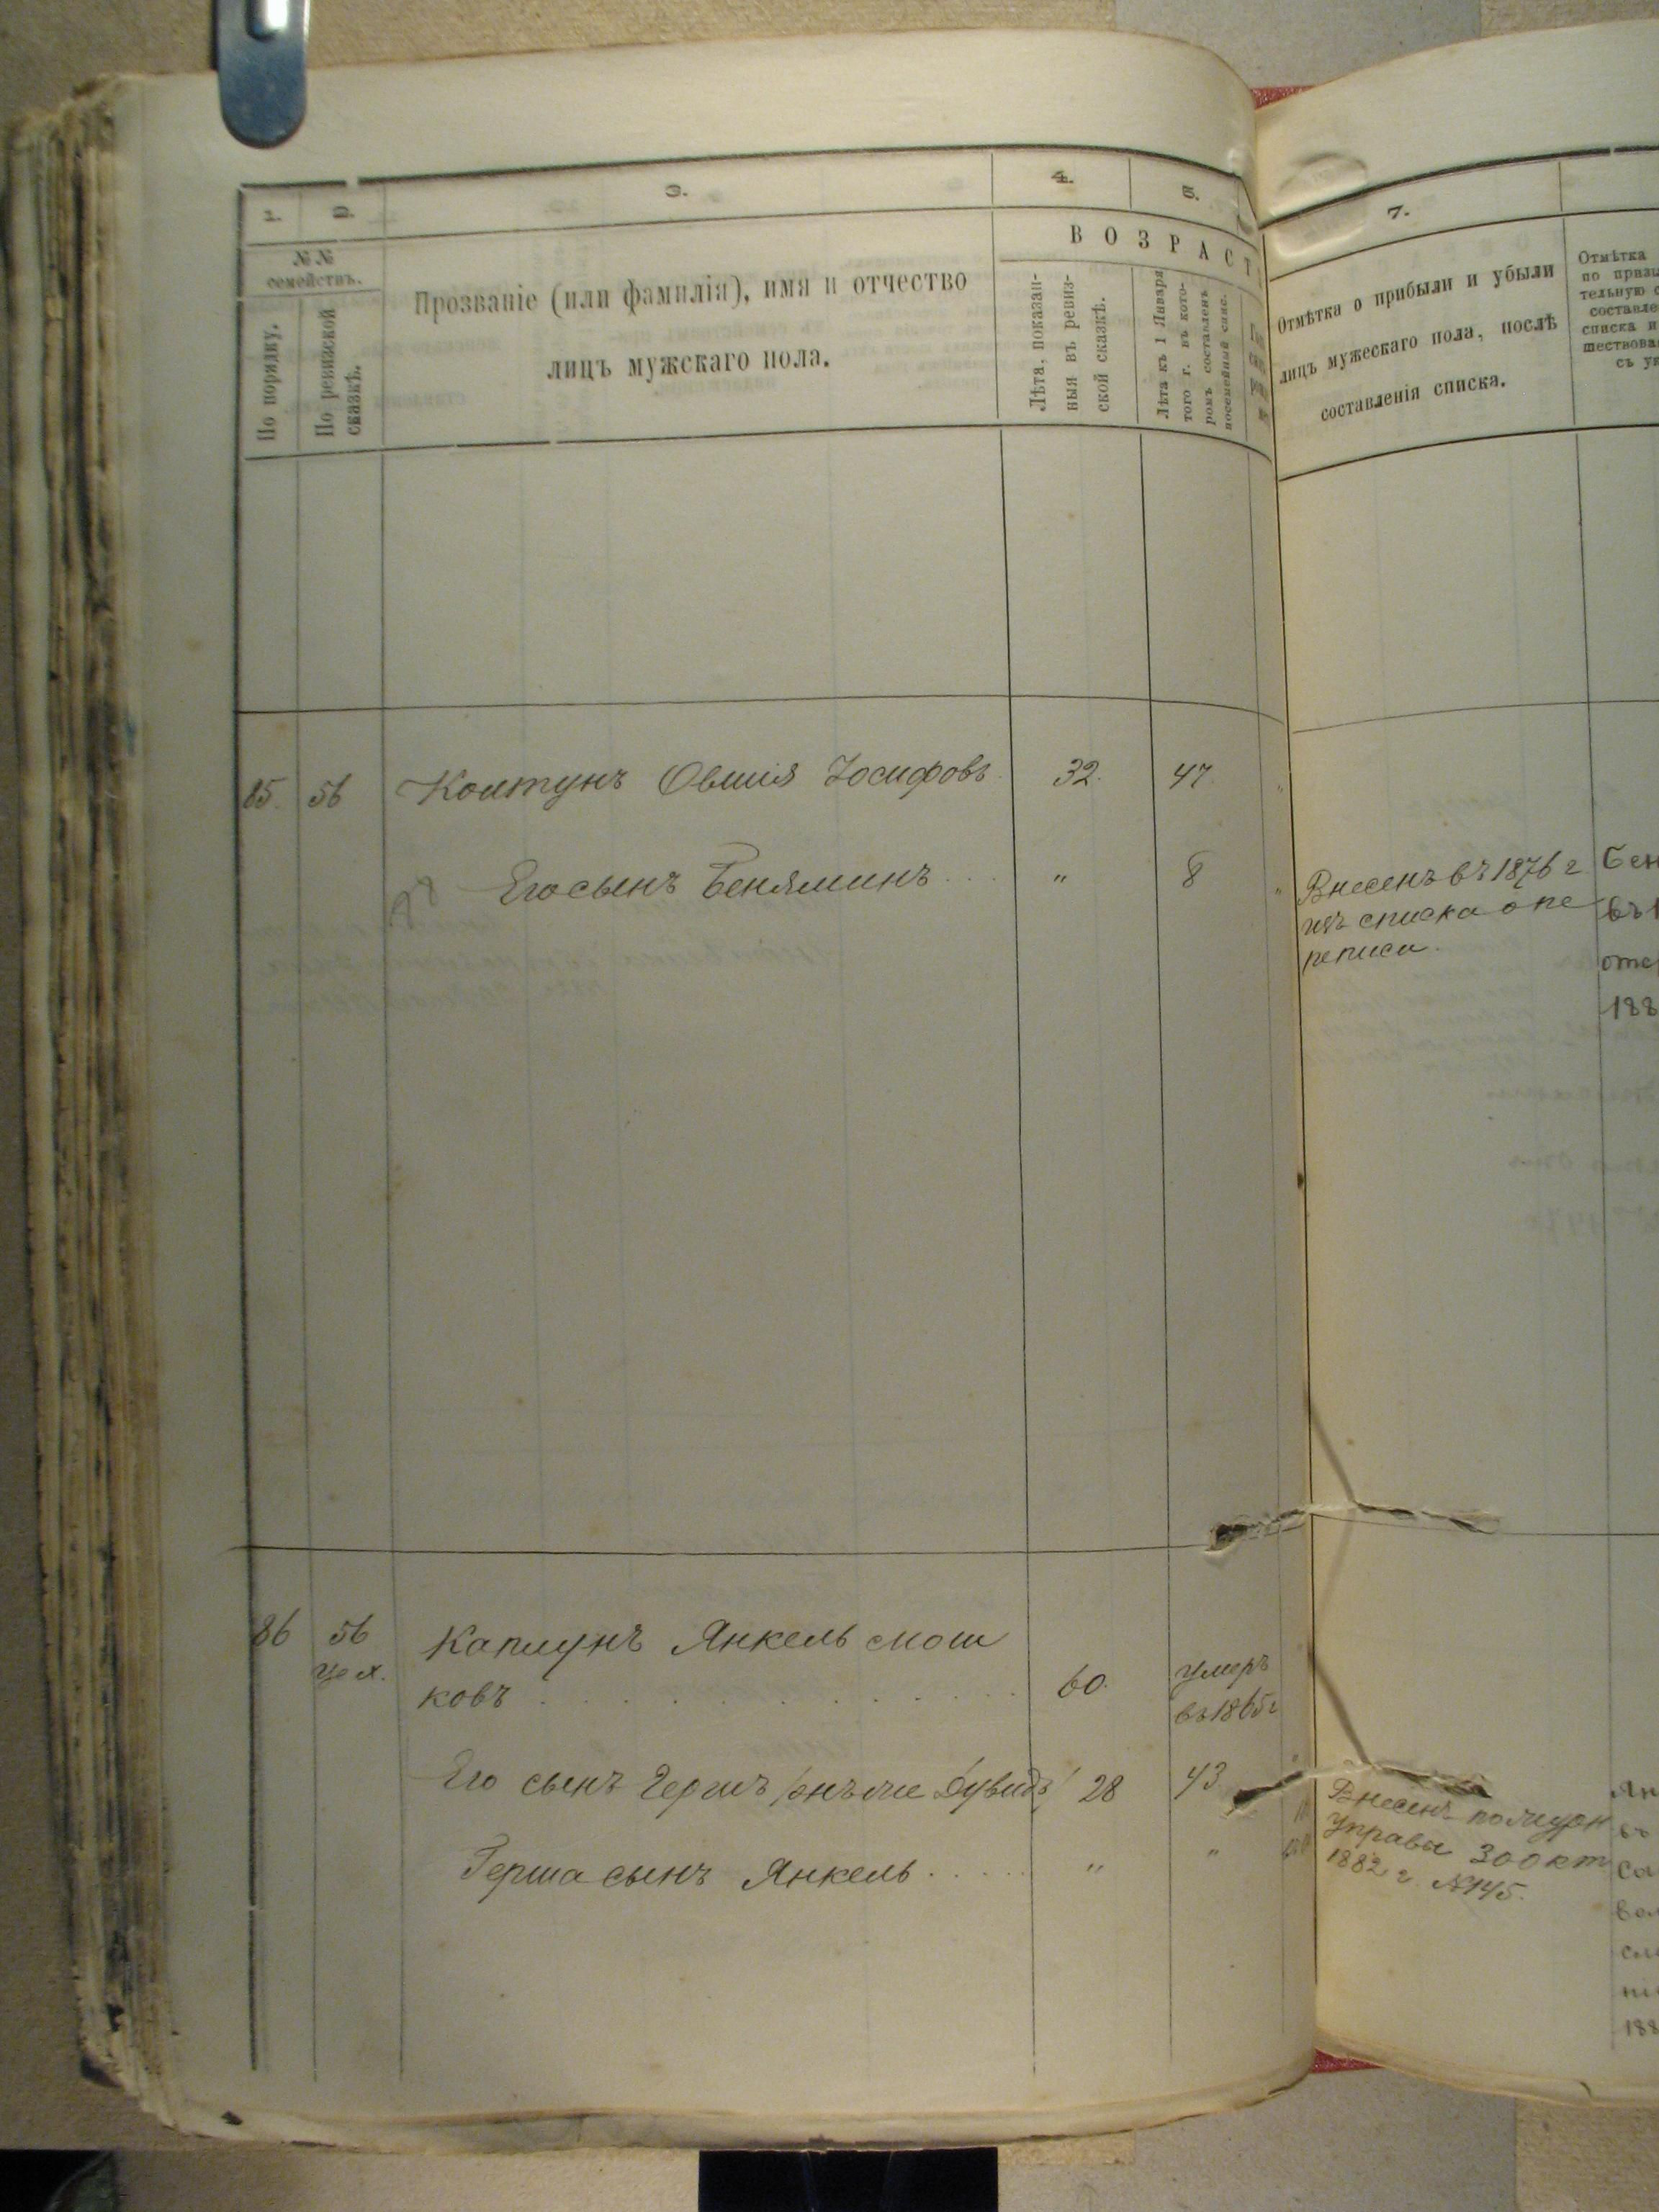 1.
2.
3.
4.
5.
7.
№№
семействъ.
По порядку.
По ревизской
сказкѣ.
Прозваніе (или фамилія), имя и отчество
лицъ мужскаго пола.
ВОЗРАСТ
Лѣта, показан-
ныя въ ревиз-
ской сказкѣ.
Лѣта къ 1 Января
того г. въ кото-
ромъ составленъ
посемейный спис.
Отмѣтка о прибыли и убыли
лицъ мужескаго пола, послѣ
составленія списка.
Отмѣтка
по призы
тельную
составле
списка и
шествова
съ ук
85. 56 Колтунъ Овшія Іосифовъ 32. 47
Его сынъ Беняминъ . . . " 8 "
Внесенъ въ 1876 г
изъ списка о пе
реписи.
Бен
въ 1
отс
188
86 56 Каплунъ Янкель Мош
цех.
ковъ . . . . . . . . . . . 60. умеръ
въ 1865 г
Его сынъ Гершъ /онъ же Дувидъ/ 28 43
Герша сынъ Янкель . . . . . " "
Внесенъ по
Управы 30 окт
1882 г. №145.
Ян
въ
Со
вол
сл
ні
188